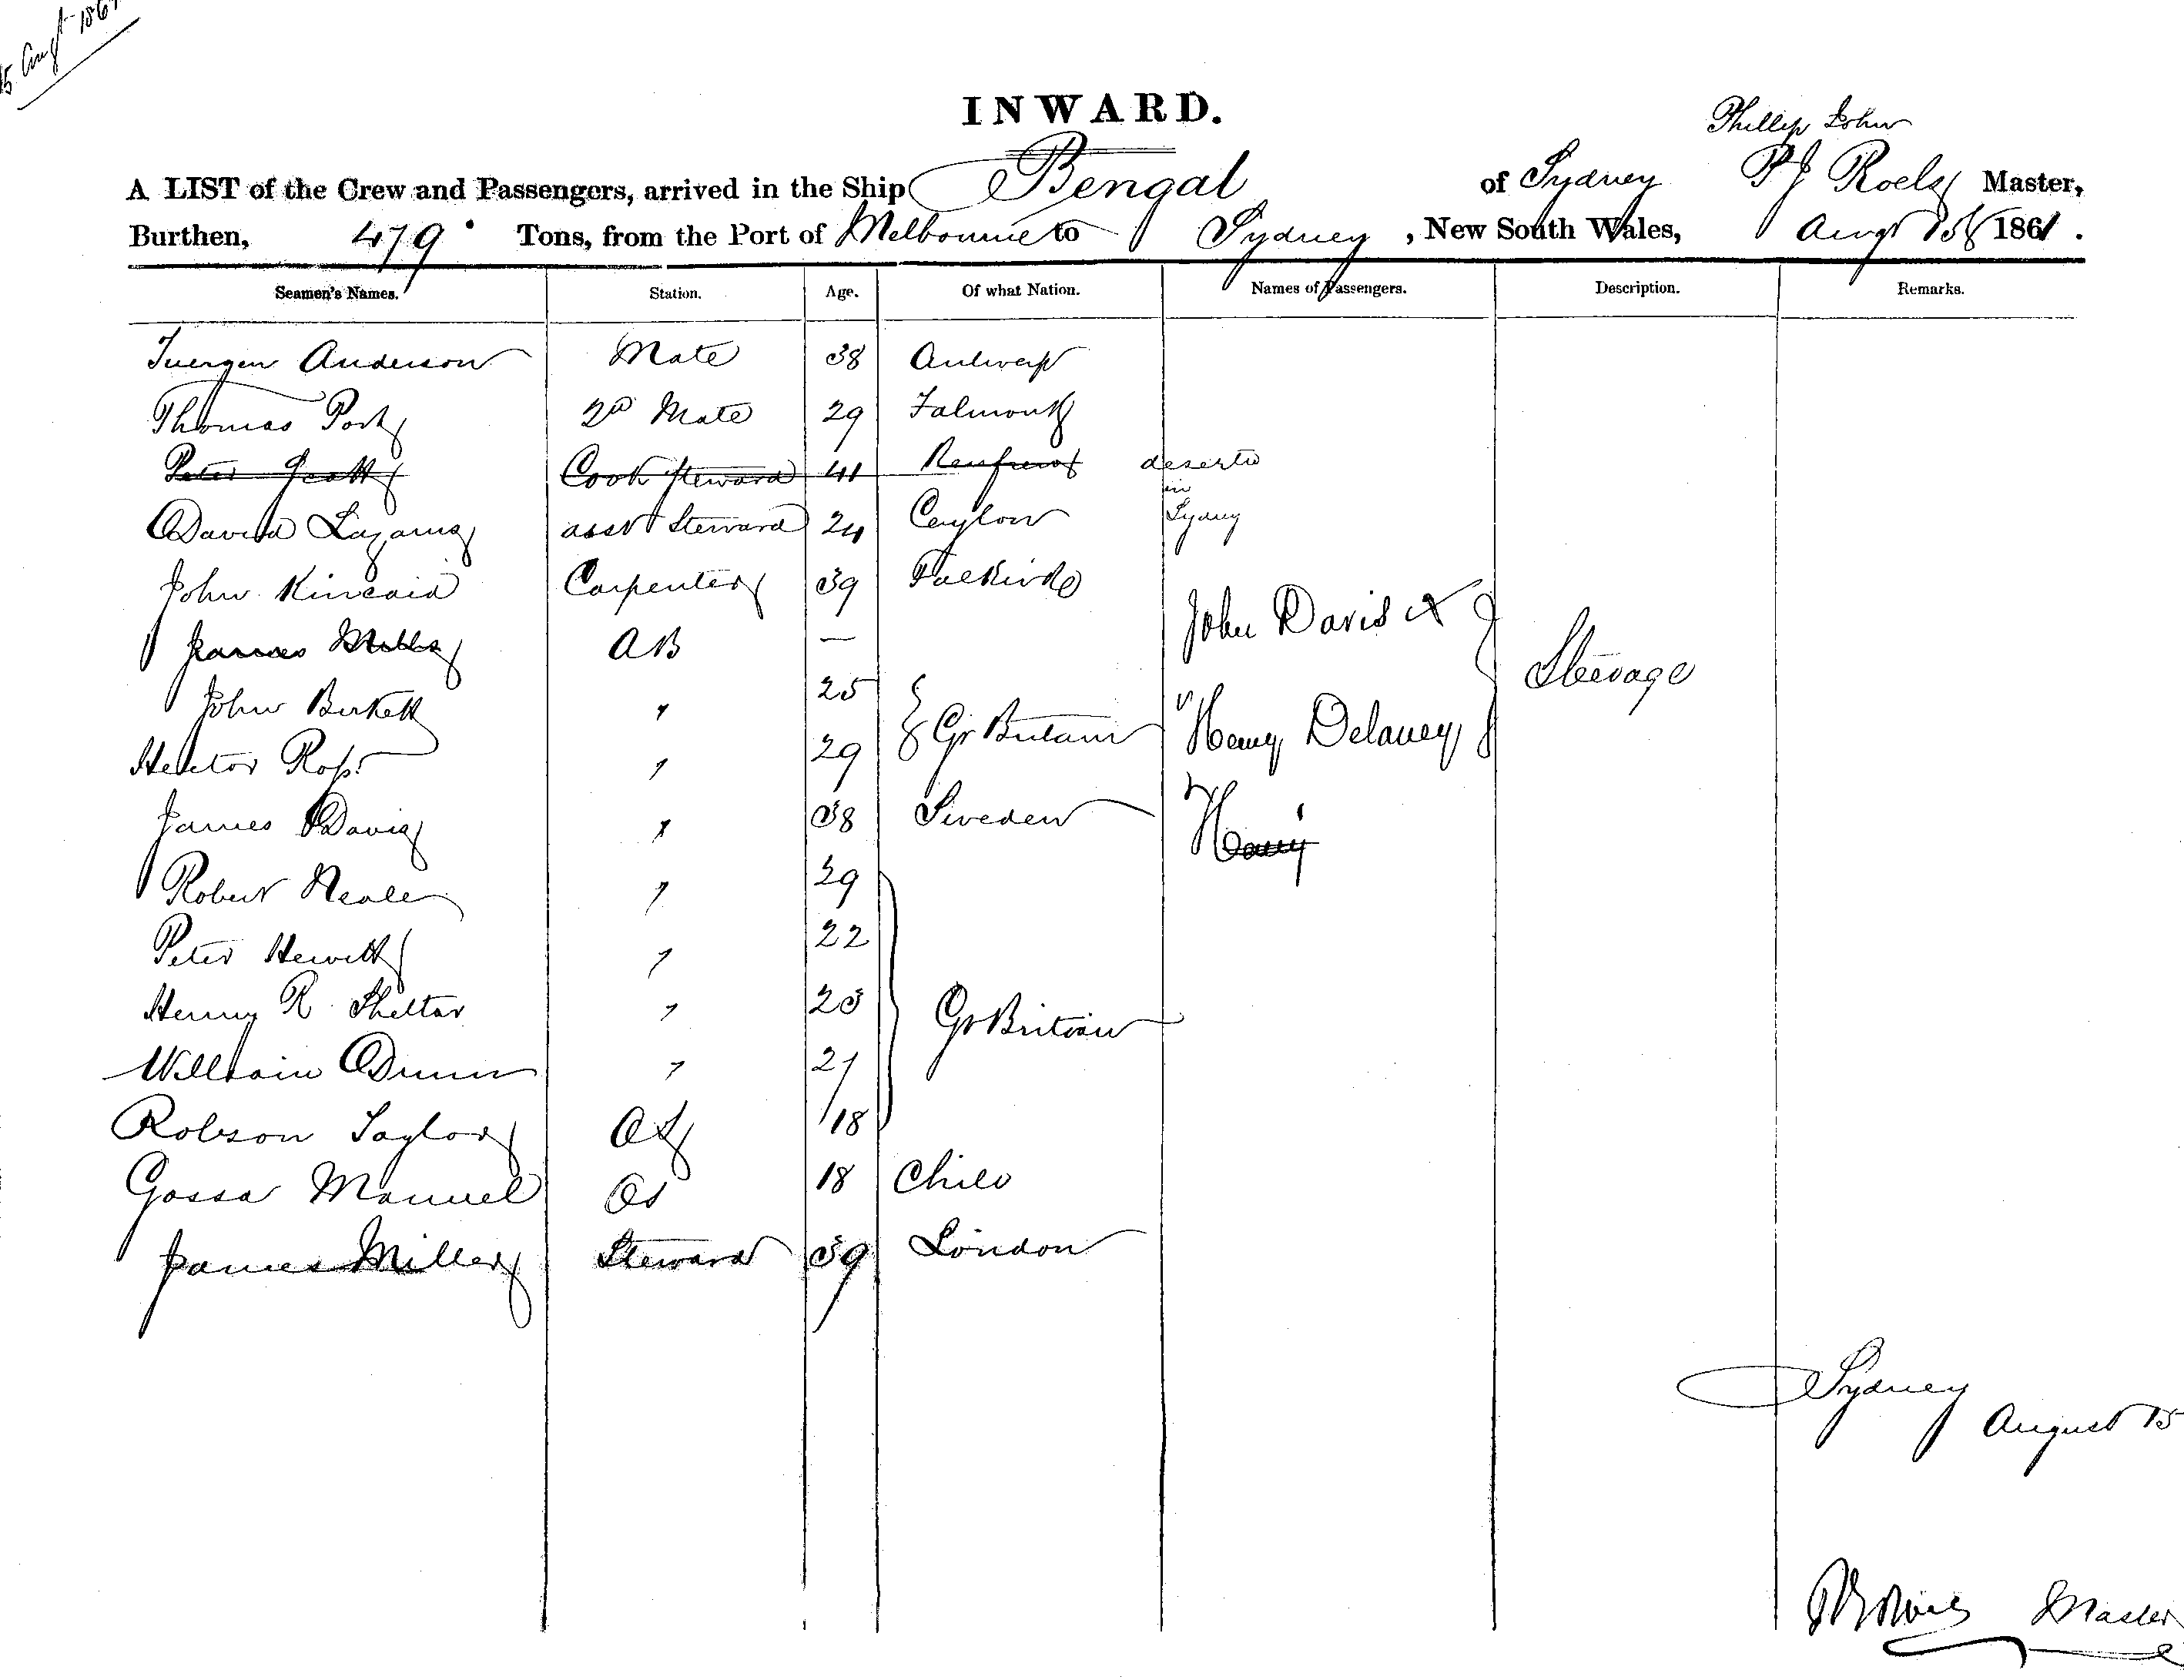 15 Augt 186
INWARD.
Phillip John
A LIST of the Crew and Passengers, arrived in the Ship Bengal of Sydney P J Roels Master,
Burthen, 479 Tons, from the Port of Melbourne to Sydney, New South Wales, Augt 15 1861.
Seamen's Names. Station. Age. Of what Nation. Names of Passengers. Description. Remarks.
Juergen Anderson Mate 38 Antwerp
Thomas Port 2d Mate 29 Falmouth
Peter Scott Cook Steward 41 Renfrew deserted
in
David Lazarus asst Steward 24 Ceylon Sydney
John Kincaid Carpenter 39 Falkirk
James Mills AB — John Davis Steerage
John Birkett " 25 Gr Britain
Hector Ross " 29 Henry Delaney
James Davis " 38 Sweden Henry
Robert Neale " 29
Peter Hewitt " 22
Henry R Shelton " 23 Gr Britain
William Dunn " 21
Robson Taylor OS 18
Gossa Manuel OS 18 Chile
James Miller Steward 39 London
Sydney
August 15
Master